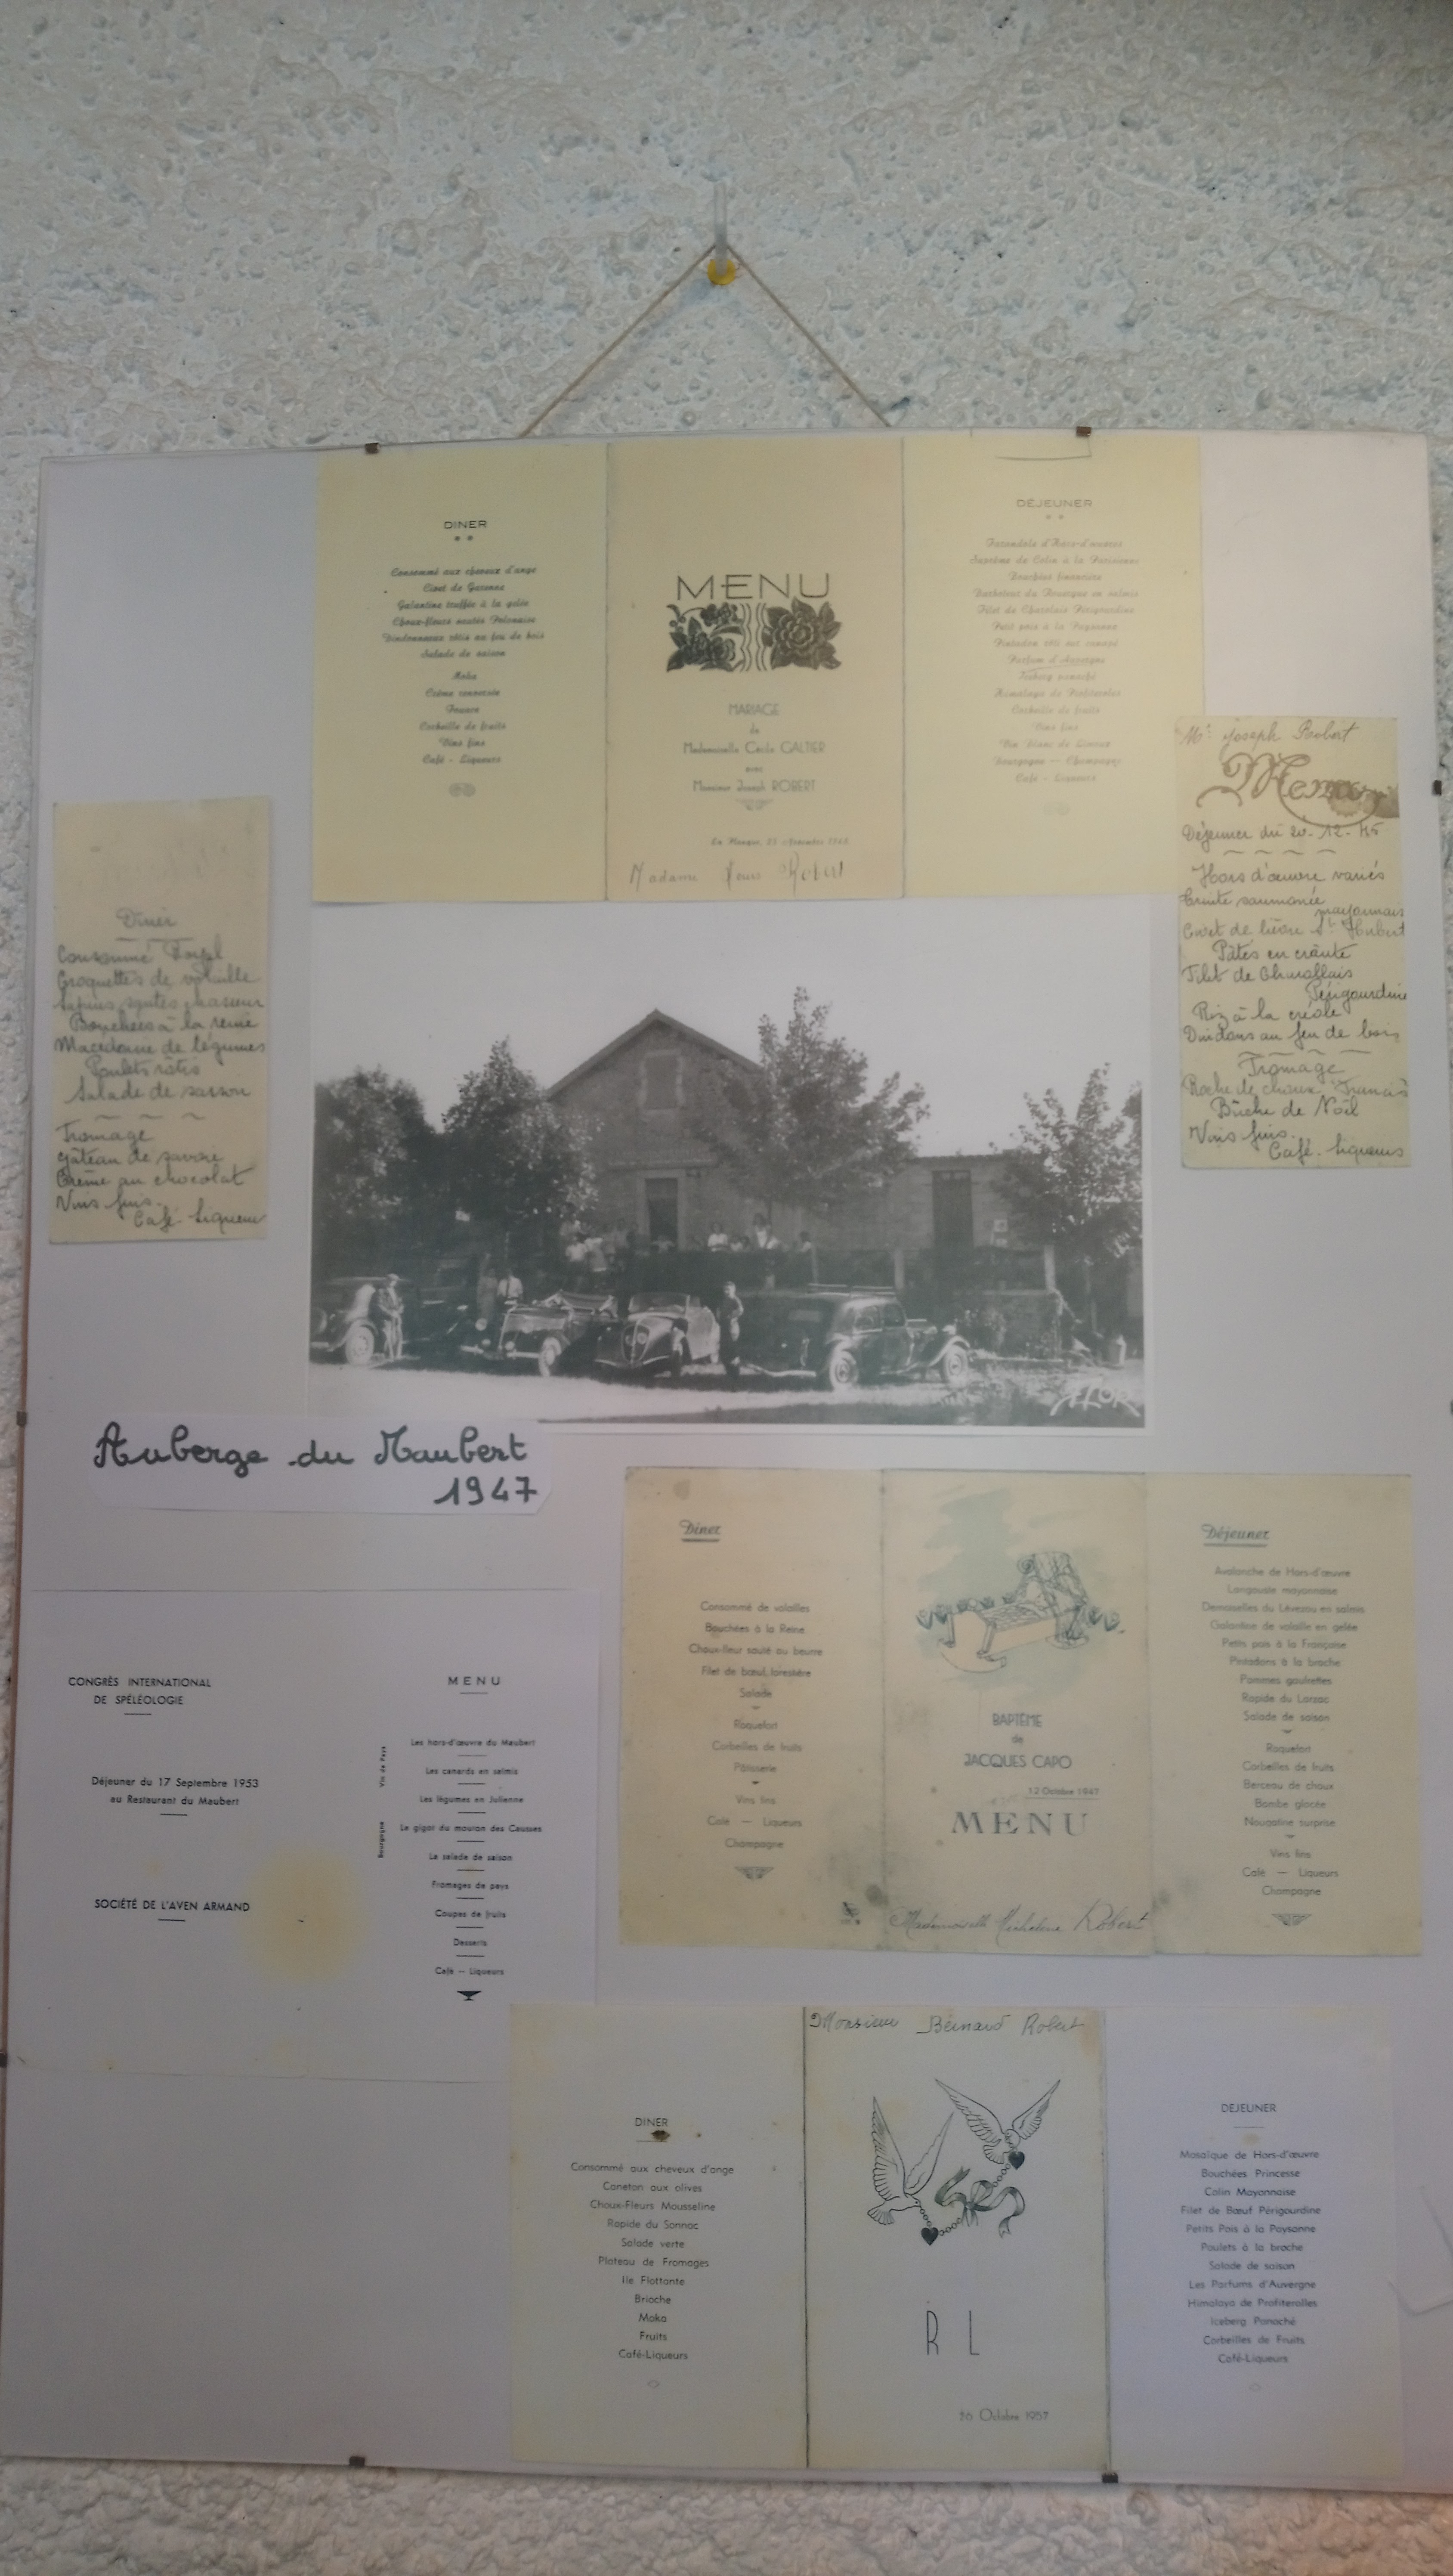 DINER
Consommé aux cheveux d'ange
Civet de Garenne
Galantine truffée à la gelée
Choux-fleurs sautés Polonaise
Dindonneaux rôtis au feu de bois
Salade de saison
Moka
Crème renversée
Fouace
Corbeille de fruits
Vins fins
Café - Liqueurs
MENU
MARIAGE
de
Mademoiselle Cécile GALTIER
avec
Monsieur Joseph ROBERT
Madame Robert
DÉJEUNER
Farandole d'Hors-d'œuvres
Suprême de Colin à la Parisienne
Bouchées financière
Filet de Charolais Périgourdine
Petit pois à la Paysanne
Pintadon rôti sur canapé
Parfum d'Auvergne
Iceberg panaché
Himalaya de Profiteroles
Corbeille de fruits
Vins fins
Vin blanc de Limoux
Bourgogne — Champagne
Café - Liqueurs
Mr Joseph Robert
Menu
Déjeuner du 20-12-
Hors d'œuvre variés
Truite saumonée
mayonnais
Civet de lièvre St Hubert
Pâtes en croûte
Filet de
Périgourdine
Riz à la créole
Dindons au feu de bois
Fromage
Bûche de Noël
Vins fins.
Café. Liqueurs
Diner
Consommé
Croquettes de volaille
Lapins sautés chasseur
Bouchées à la reine
Macédoine de légumes
Poulets rôtis
Salade de saison
Fromage
gâteau de savoie
Crème au chocolat
Vins fins.
Café liqueur
Auberge du Maubert
1947
CONGRÈS INTERNATIONAL
DE SPÉLÉOLOGIE
Déjeuner du 17 Septembre 1953
au Restaurant du Maubert
SOCIÉTÉ DE L'AVEN ARMAND
MENU
Vin de Pays
Bourgogne
Les hors-d'œuvre du Maubert
Les canards en salmis
Les légumes en Julienne
Le gigot du mouton des Causses
La salade de saison
Fromages de pays
Coupes de fruits
Desserts
Café — Liqueurs
Diner
Consommé de volailles
Bouchées à la Reine
Choux-fleur sauté au beurre
Filet de bœuf forestière
Salade
Roquefort
Corbeilles de fruits
Pâtisserie
Vins fins
Café — Liqueurs
Champagne
BAPTÊME
de
JACQUES CAPO
12 Octobre 1947
MENU
Mademoiselle Robert
Déjeuner
Avalanche de Hors-d'œuvre
Langouste mayonnaise
Demoiselles du Lévezou en salmis
Galantine de volaille en gelée
Petits pois à la Française
Pintadons à la broche
Pommes gaufrettes
Rapide du Larzac
Salade de saison
Roquefort
Corbeilles de fruits
Berceau de choux
Bombe glacée
Nougatine surprise
Vins fins
Café — Liqueurs
Champagne
DINER
Consommé aux cheveux d'ange
Caneton aux olives
Choux-Fleurs Mousseline
Rapide du Sonnac
Salade verte
Plateau de Fromages
Ile Flottante
Brioche
Moka
Fruits
Café-Liqueurs
Monsieur Bernard Robert
R L
26 Octobre 1957
DEJEUNER
Mosaïque de Hors-d'œuvre
Bouchées Princesse
Colin Mayonnaise
Filet de Bœuf Périgourdine
Petits Pois à la Paysanne
Poulets à la broche
Salade de saison
Les Parfums d'Auvergne
Himalaya de Profiterolles
Iceberg Panaché
Corbeilles de Fruits
Café-Liqueurs